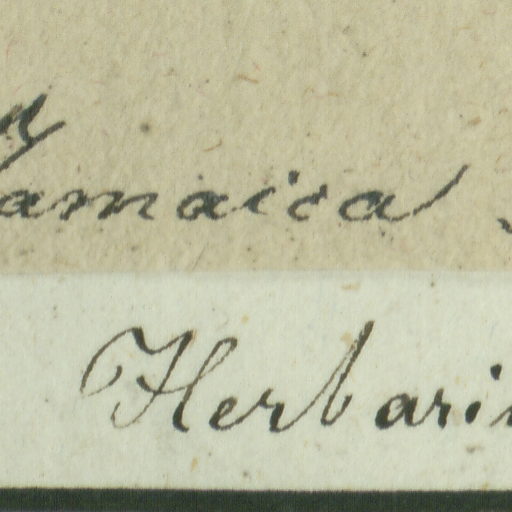 Jamaica
Herbari